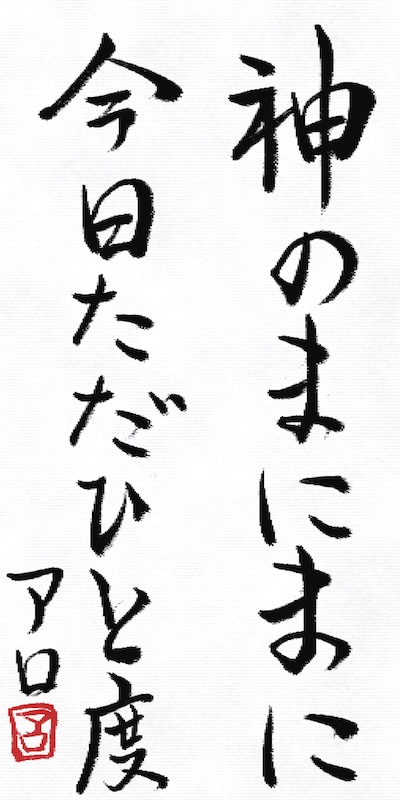 神のまにまに
今日ただひと度
アロ